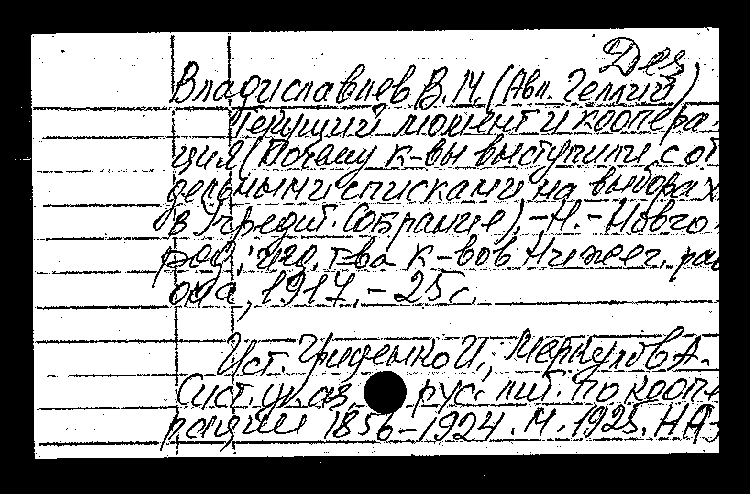 Дез
Владиславлев В. М. (Авл. Геллий)
Текущий момент и коопера-
ция (Почему к-вы выступили с от
дельными списками на выборах
в Учредит. Собрание). - Н. - Новго-
род; изд. т-ва к-вов Нижег. рай
она, 1917. - 25 с.
Ист. Гриденко И., Меркулов А.
Сист. указ. рус. лит. по коопе
рации 1856-1924. М. 1925. НА